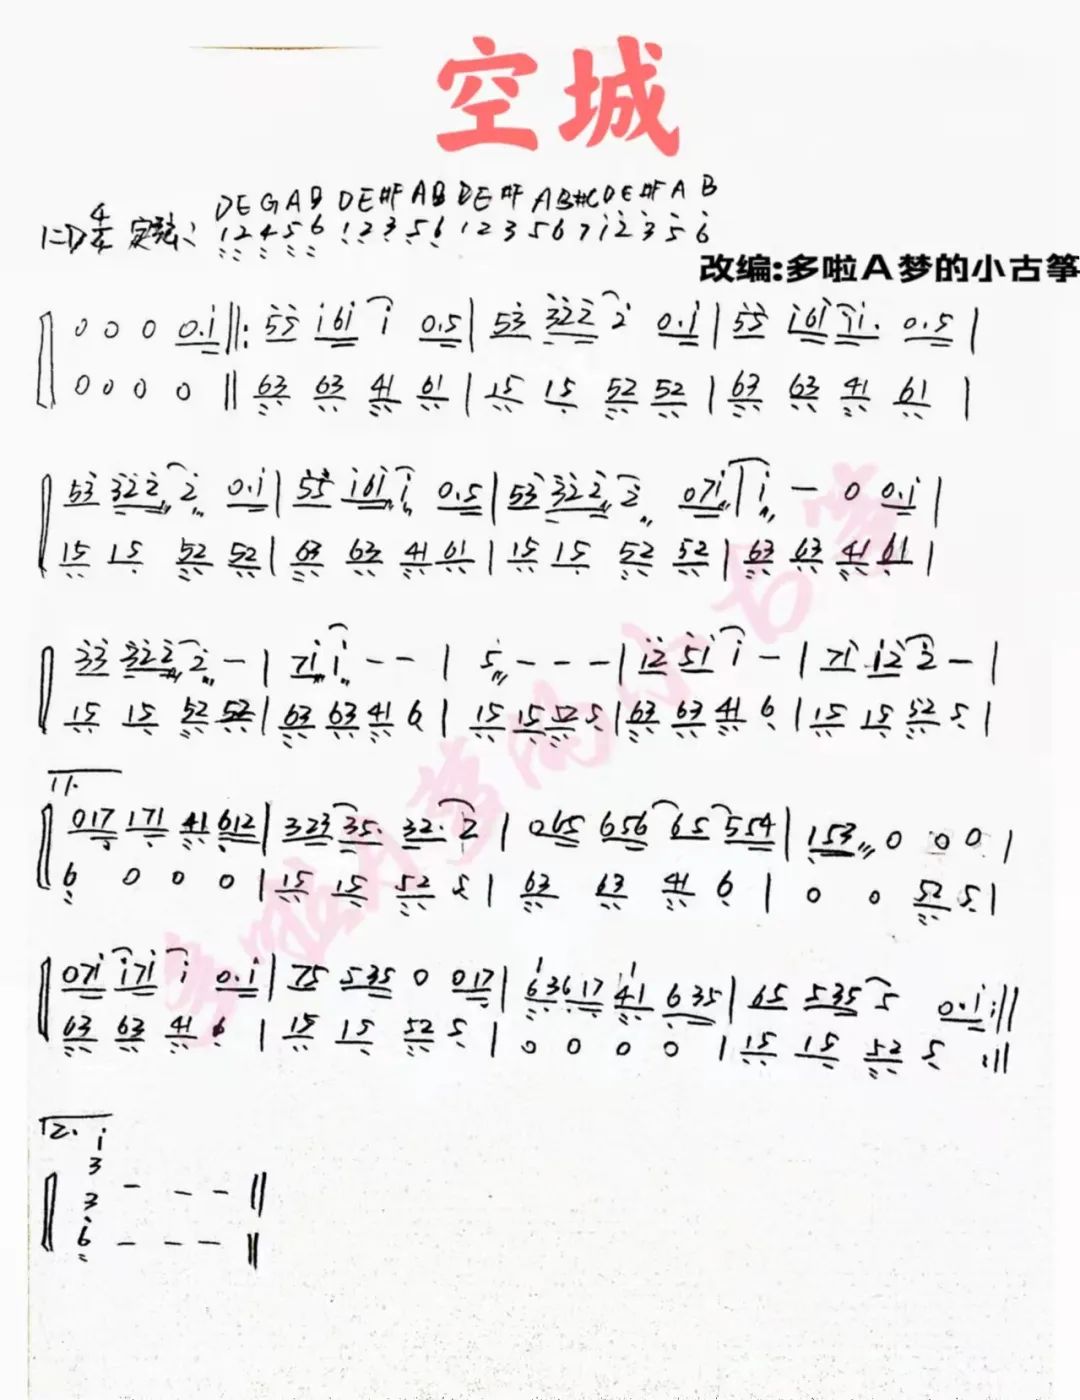 空城
1=D 4/4 定弦: DEGAB DE#FAB DE#F AB#CDE#FA B
12456 12356 123 5671235 6
改编:多啦A梦的小古筝
0 0 0 0.1 ‖: 55 161 1 0.5 | 53 322 2 0.1 | 55 161 11. 0.5 |
0 0 0 0 ‖ 63 63 41 61 | 15 15 52 52 | 63 63 41 61 |
53 322 2 0.1 | 55 161 1 0.5 | 53 322 2 071 | 1 – 0 0.1 |
15 15 52 52 | 63 63 41 61 | 15 15 52 52 | 63 63 41 61 |
33 322 2 – | 71 1 – – | 5 – – – | 12 51 1 – | 71 12 2 – |
15 15 52 52 | 63 63 41 6 | 15 15 52 5 | 63 63 41 6 | 15 15 52 5 |
1.
017 171 41 612 | 323 35. 32. 2 | 065 656 65 554 | 153 0 0 0 |
6 0 0 0 | 15 15 52 5 | 63 63 41 6 | 0 0 52 5 |
071 171 1 0.1 | 75 535 0 017 | 636 17 41 635 | 65 535 5 0.1 :‖
63 63 41 6 | 15 15 52 5 | 0 0 0 0 | 15 15 52 5 :‖
2.
1
3
3 – – – ‖
6 – – – ‖
多啦A梦的小古筝